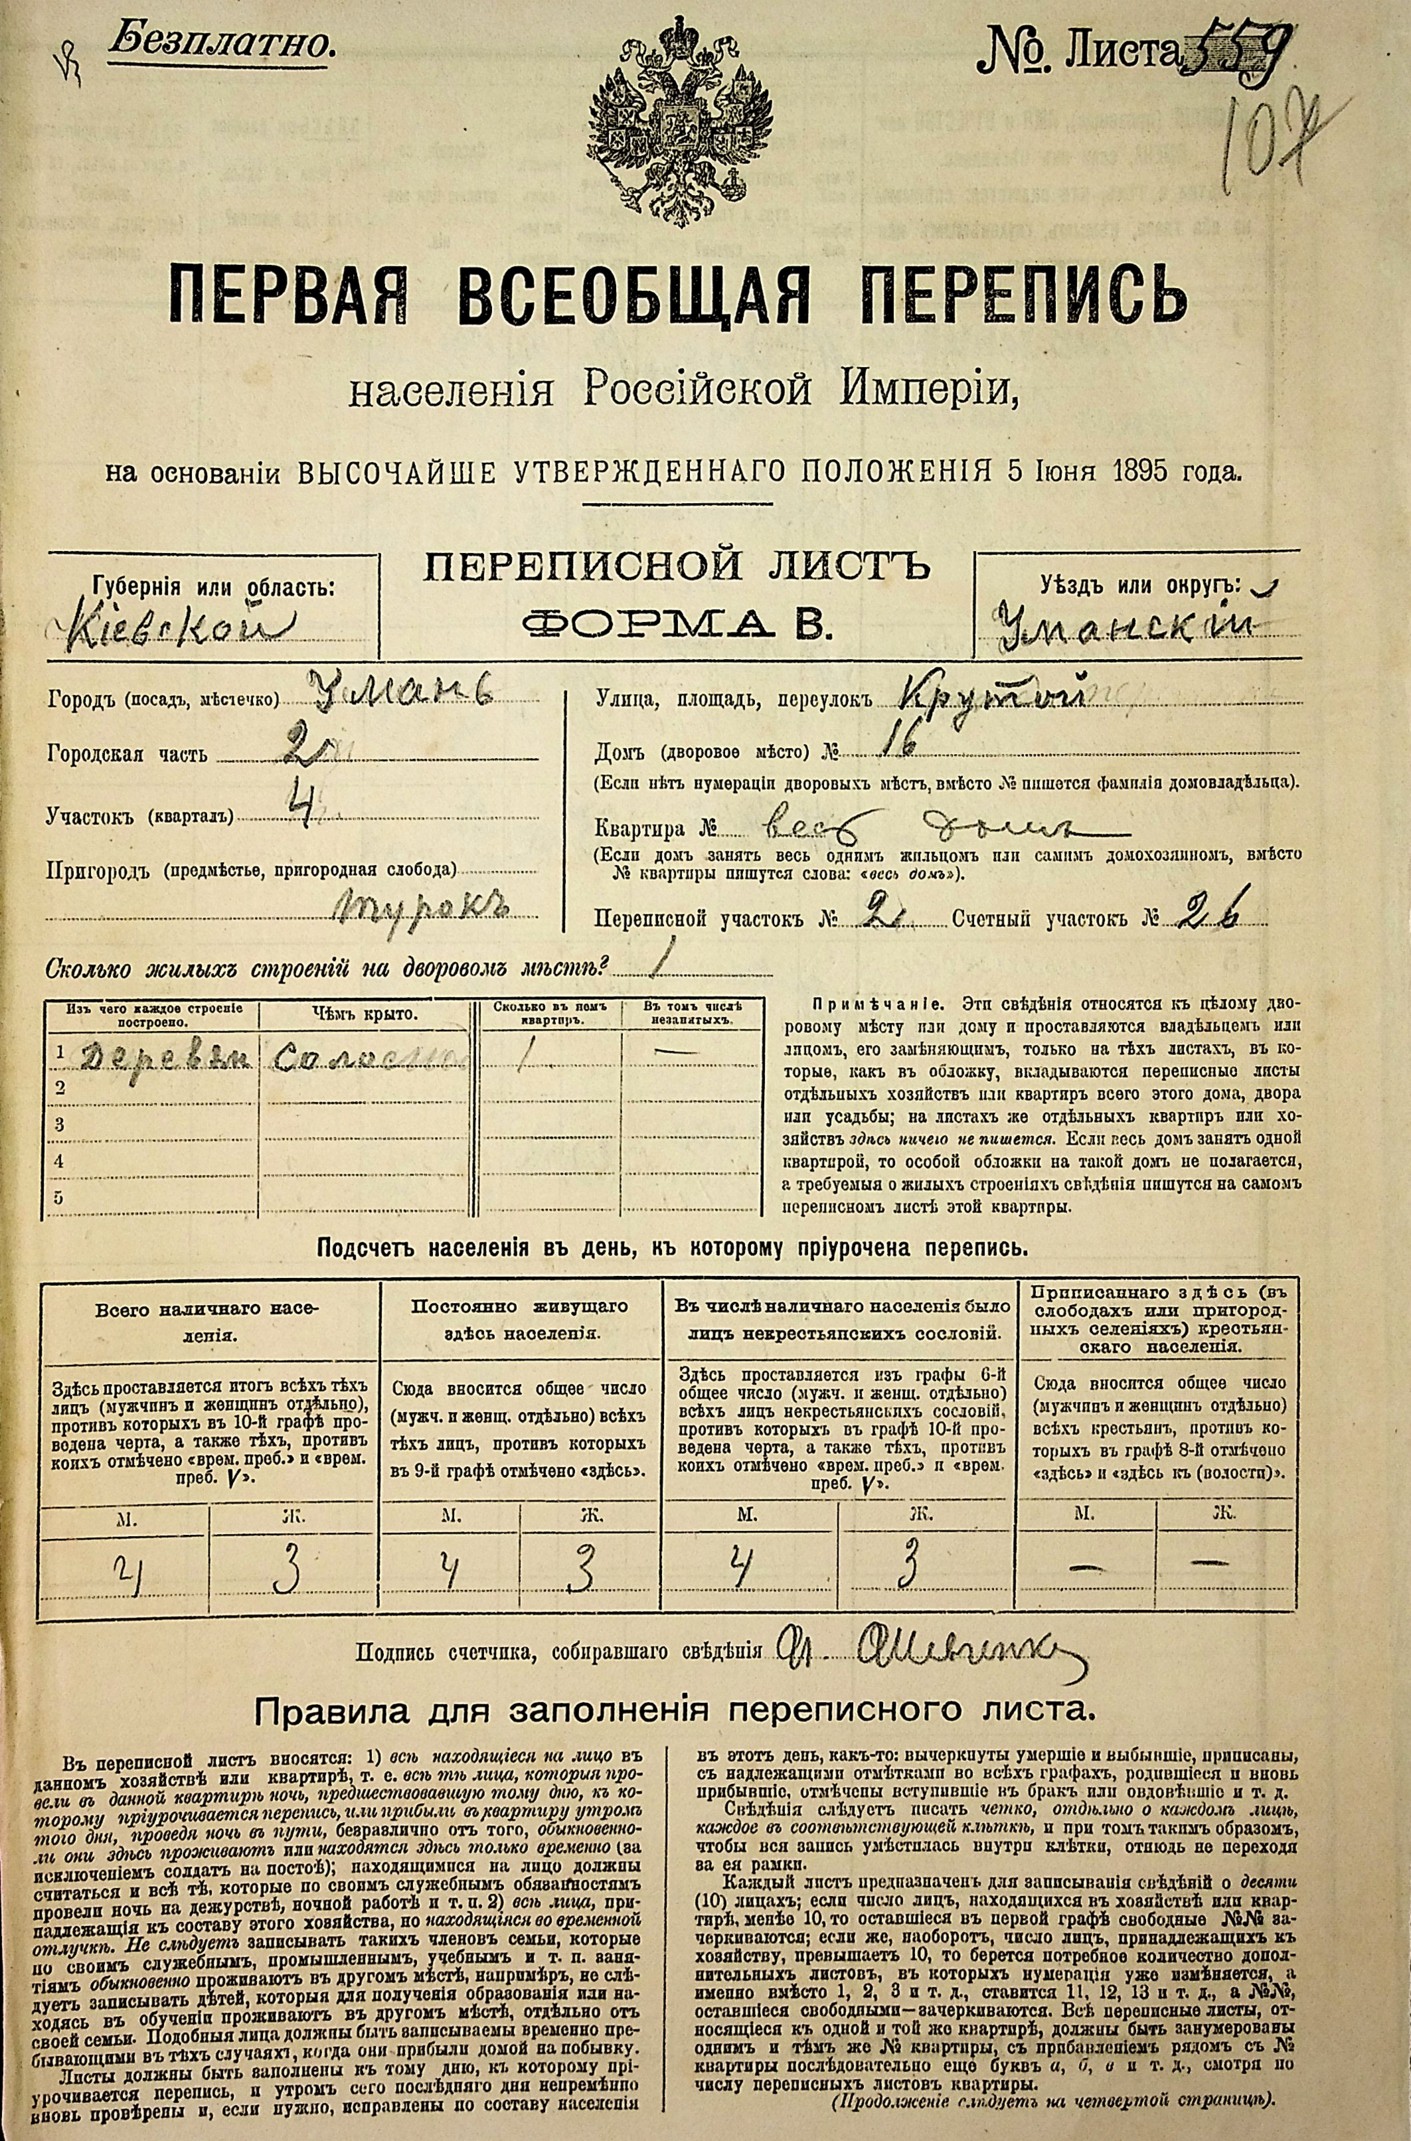 Безплатно.
№. Листа 559
107
ПЕРВАЯ ВСЕОБЩАЯ ПЕРЕПИСЬ
населенія Россійской Имперіи,
на основаніи ВЫСОЧАЙШЕ УТВЕРЖДЕННАГО ПОЛОЖЕНІЯ 5 Іюня 1895 года.
Губернія или область:
Кіевской
ПЕРЕПИСНОЙ ЛИСТЪ
ФОРМА В.
Уѣздъ или округъ:
Уманскій
Городъ (посадъ, мѣстечко) Умань
Городская часть 2
Участокъ (кварталъ) 4
Пригородъ (предмѣстье, пригородная слобода)
Турокъ
Улица, площадь, переулокъ Крутой
Домъ (дворовое мѣсто) № 16
(Если нѣтъ нумераціи дворовыхъ мѣстъ, вмѣсто № пишется фамилія домовладѣльца).
Квартира № весь домъ
(Если домъ занятъ весь однимъ жильцомъ или самимъ домохозяиномъ, вмѣсто
№ квартиры пишутся слова: «весь домъ»).
Переписной участокъ № 2 Счетный участокъ № 26
Сколько жилыхъ строеній на дворовомъ мѣстѣ? 1
Изъ чего каждое строеніе построено.
Чѣмъ крыто.
Сколько въ немъ квартиръ.
Въ томъ числѣ незанятыхъ.
1 Деревян Солом 1 —
2
3
4
5
Примѣчаніе. Эти свѣдѣнія относятся къ цѣлому дво-
ровому мѣсту или дому и проставляются владѣльцемъ или
лицомъ, его замѣняющимъ, только на тѣхъ листахъ, въ ко-
торые, какъ въ обложку, вкладываются переписные листы
отдѣльныхъ хозяйствъ или квартиръ всего этого дома, двора
или усадьбы; на листахъ же отдѣльныхъ квартиръ или хо-
зяйствъ здѣсь ничего не пишется. Если весь домъ занятъ одной
квартирой, то особой обложки на такой домъ не полагается,
а требуемыя о жилыхъ строеніяхъ свѣдѣнія пишутся на самомъ
переписномъ листѣ этой квартиры.
Подсчетъ населенія въ день, къ которому пріурочена перепись.
Всего наличнаго насе-
ленія.
Здѣсь проставляется итогъ всѣхъ тѣхъ
лицъ (мужчинъ и женщинъ отдѣльно),
противъ которыхъ въ 10-й графѣ про-
ведена черта, а также тѣхъ, противъ
коихъ отмѣчено «врем. преб.» и «врем.
преб. V».
Постоянно живущаго
здѣсь населенія.
Сюда вносится общее число
(мужч. и женщ. отдѣльно) всѣхъ
тѣхъ лицъ, противъ которыхъ
въ 9-й графѣ отмѣчено «здѣсь».
Въ числѣ наличнаго населенія было
лицъ некрестьянскихъ сословій.
Здѣсь проставляется изъ графы 6-й
общее число (мужч. и женщ. отдѣльно)
всѣхъ лицъ некрестьянскихъ сословій,
противъ которыхъ въ графѣ 10-й про-
ведена черта, а также тѣхъ, противъ
коихъ отмѣчено «врем. преб.» и «врем.
преб. V».
Приписаннаго здѣсь (въ
слободахъ или пригород-
ныхъ селеніяхъ) крестьян-
скаго населенія.
Сюда вносится общее число
(мужчинъ и женщинъ отдѣльно)
всѣхъ крестьянъ, противъ ко-
торыхъ въ графѣ 8-й отмѣчено
«здѣсь» и «здѣсь къ (волости)».
М. Ж. М. Ж. М. Ж. М. Ж.
4 3 4 3 4 3 — —
Подпись счетчика, собиравшаго свѣдѣнія
Правила для заполненія переписного листа.
Въ переписной листъ вносятся: 1) всѣ находящіеся на лицо въ
данномъ хозяйствѣ или квартирѣ, т. е. всѣ тѣ лица, которыя про-
вели въ данной квартирѣ ночь, предшествовавшую тому дню, къ ко-
торому пріурочивается перепись, или прибыли въ квартиру утромъ
того дня, проведя ночь въ пути, безразлично отъ того, обыкновенно-
ли они здѣсь проживаютъ или находятся здѣсь только временно (за
исключеніемъ солдатъ на постоѣ); находящимися на лицо должны
считаться и всѣ тѣ, которые по своимъ служебнымъ обязанностямъ
провели ночь на дежурствѣ, ночной работѣ и т. п. 2) всѣ лица, при-
надлежащія къ составу этого хозяйства, но находящіяся во временной
отлучкѣ. Не слѣдуетъ записывать такихъ членовъ семьи, которые
по своимъ служебнымъ, промышленнымъ, учебнымъ и т. п. заня-
тіямъ обыкновенно проживаютъ въ другомъ мѣстѣ, напримѣръ, не слѣ-
дуетъ записывать дѣтей, которыя для полученія образованія или на-
ходясь въ обученіи проживаютъ въ другомъ мѣстѣ, отдѣльно отъ
своей семьи. Подобныя лица должны быть записываемы временно пре-
бывающими въ тѣхъ случаяхъ, когда они прибыли домой на побывку.
Листы должны быть заполнены къ тому дню, къ которому прі-
урочивается перепись, и утромъ сего послѣдняго дня непремѣнно
вновь провѣрены и, если нужно, исправлены по составу населенія
въ этотъ день, какъ-то: вычеркнуты умершіе и выбывшіе, приписаны,
съ надлежащими отмѣтками во всѣхъ графахъ, родившіеся и вновь
прибывшіе, отмѣчены вступившіе въ бракъ или овдовѣвшіе и т. д.
Свѣдѣнія слѣдуетъ писать четко, отдѣльно о каждомъ лицѣ,
каждое въ соотвѣтствующей клѣткѣ, и при томъ такимъ образомъ,
чтобы вся запись умѣстилась внутри клѣтки, отнюдь не переходя
за ея рамки.
Каждый листъ предназначенъ для записыванія свѣдѣній о десяти
(10) лицахъ; если число лицъ, находящихся въ хозяйствѣ или квар-
тирѣ, менѣе 10, то оставшіеся въ первой графѣ свободные №№ за-
черкиваются; если же, наоборотъ, число лицъ, принадлежащихъ къ
хозяйству, превышаетъ 10, то берется потребное количество допол-
нительныхъ листовъ, въ которыхъ нумерація уже измѣняется, а
именно вмѣсто 1, 2, 3 и т. д., ставится 11, 12, 13 и т. д., а №№,
оставшіеся свободными—зачеркиваются. Всѣ переписные листы, от-
носящіеся къ одной и той же квартирѣ, должны быть занумерованы
однимъ и тѣмъ же № квартиры, съ прибавленіемъ рядомъ съ №
квартиры послѣдовательно еще буквъ а, б, в и т. д., смотря по
числу переписныхъ листовъ квартиры.
(Продолженіе слѣдуетъ на четвертой страницѣ).